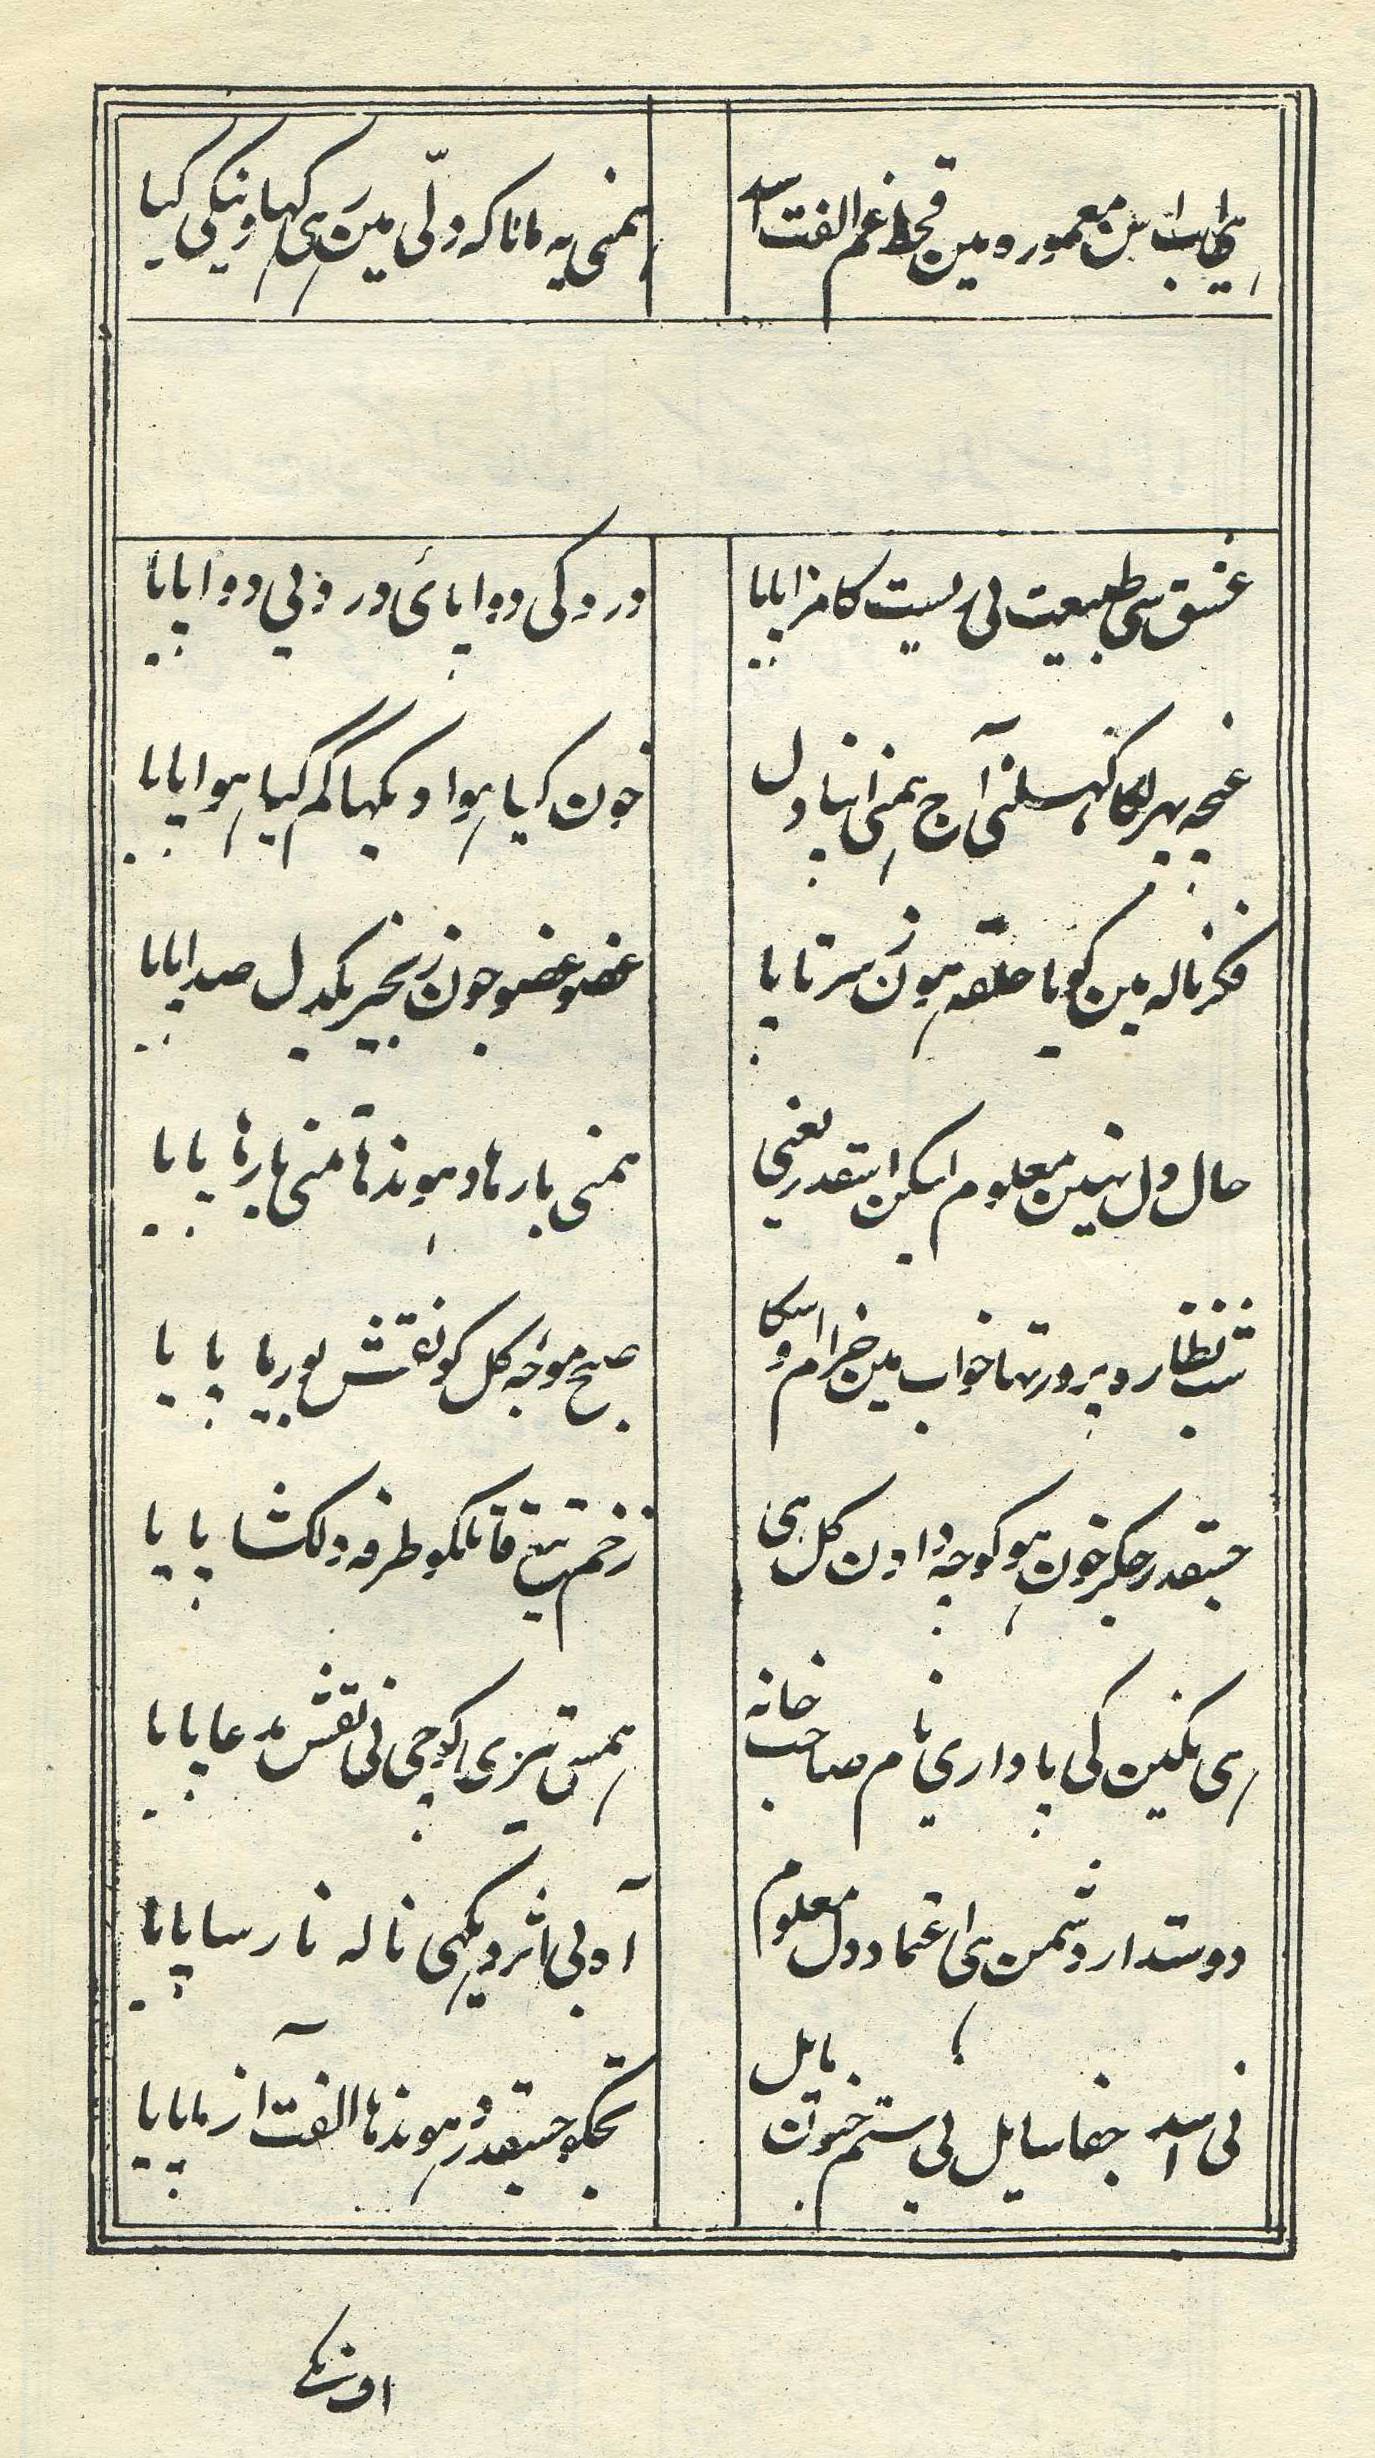 ہی اب اس معموره مین قحط غم الفت اسد
ہمنی یہ مانا کہ دلّی مین رہی کہاوینگی کیا
عشق سی طبیعت نی زیست کا مزا پایا
درد کی دوا پائی درد بی دوا پایا
غنچہ پہر لگا کہلنی آج ہمنی اپنا دل
خون کیا ہوا دیکہا گم کیا ہوا پایا
فکر ناله مین گویا حلقہ ہون ز سر تا پا
عضو عضو جون زنجیر یکدل صدا پایا
حال دل نہین معلوم لیکن اسقدر یعنی
ہمنی بارہا ڈہونڈہا تمنی بارہا پایا
شب نظاره پرور تہا خواب مین خرام اوسکا
صبح موجۂ گل کو نقش بوریا پایا
جسقدر جگر خون ہو کوچہ دادن گل ہی
زخم تیغ قاتلکو طرفہ دلکشا پایا
ہی نگین کی پاداری نام صاحب خانہ
ہمسی تیری کوچی نی نقش مدعا پایا
دوستدار دشمن ہی اعتماد دل معلوم
آه بی اثر دیکہی ناله نارسا پایا
نی اسد جفا سایل نی ستم جنون مایل
تجکو جسقدر ڈہونڈہا الفت آزما پایا